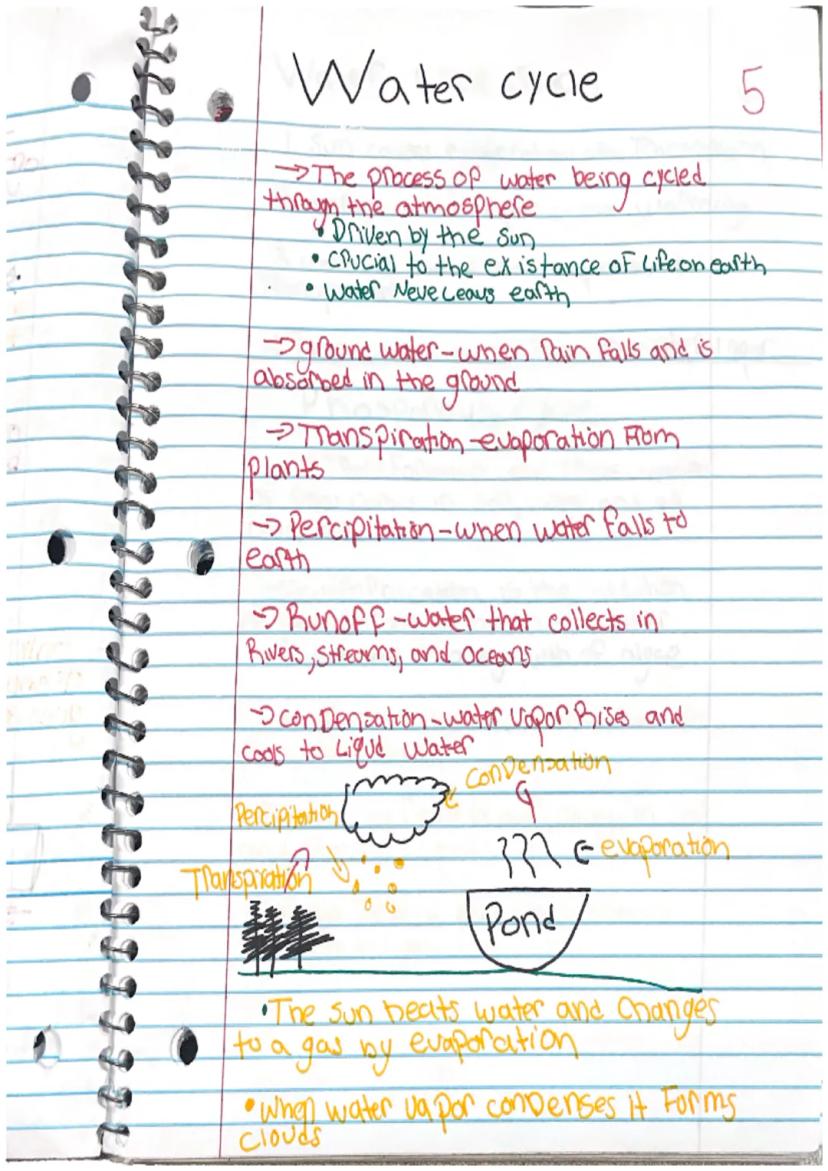 Water cycle
5
→The process of water being cycled
through the atmosphere
• Driven by the sun
• Crucial to the existance of Life on earth
• Water Neve Leavs earth
→ground water-when Rain falls and is
absorbed in the ground
→Transpiration-evaporation From
plants
→Percipitation-when water falls to
earth
→Runoff-water that collects in
Rivers, streams, and oceans
→conDensation-water vapor Rises and
cools to Liqud Water
conDensation
Percipitation
evaporation
Transpiration
Pond
•The sun heats water and Changes
to a gas by evaporation
•When water vapor condenses it Forms
clouds